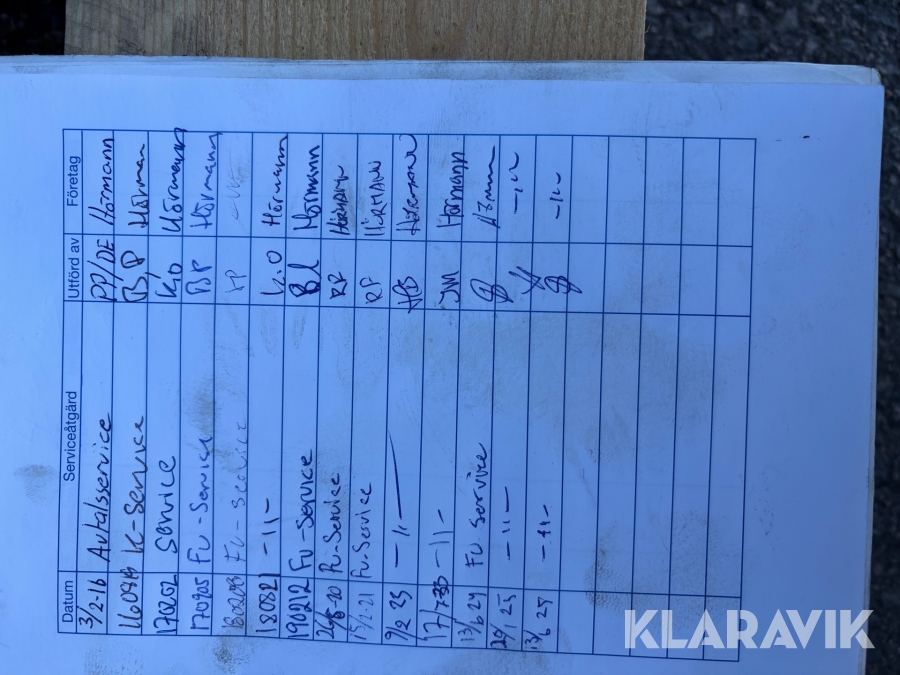 Datum Serviceåtgärd Utförd av Företag
3/2-16 Avtalsservice PP/DE Hörmann
K-Service BP Hörman
170202 Service K,O Hörmann
170905 FU-Service BP Hörmann
FU-Service
180821 -11- K.O Hörmann
190212 FU-Service Bl Hörmann
FU-Service RF HÖRMANN
FU-Service RF HÖRMANN
9/2 23 -11- HB Hörmann
-11- JM Hörmann
13/6 24 FU Service
-11- -11-
-11- -11-
KLARAVIK